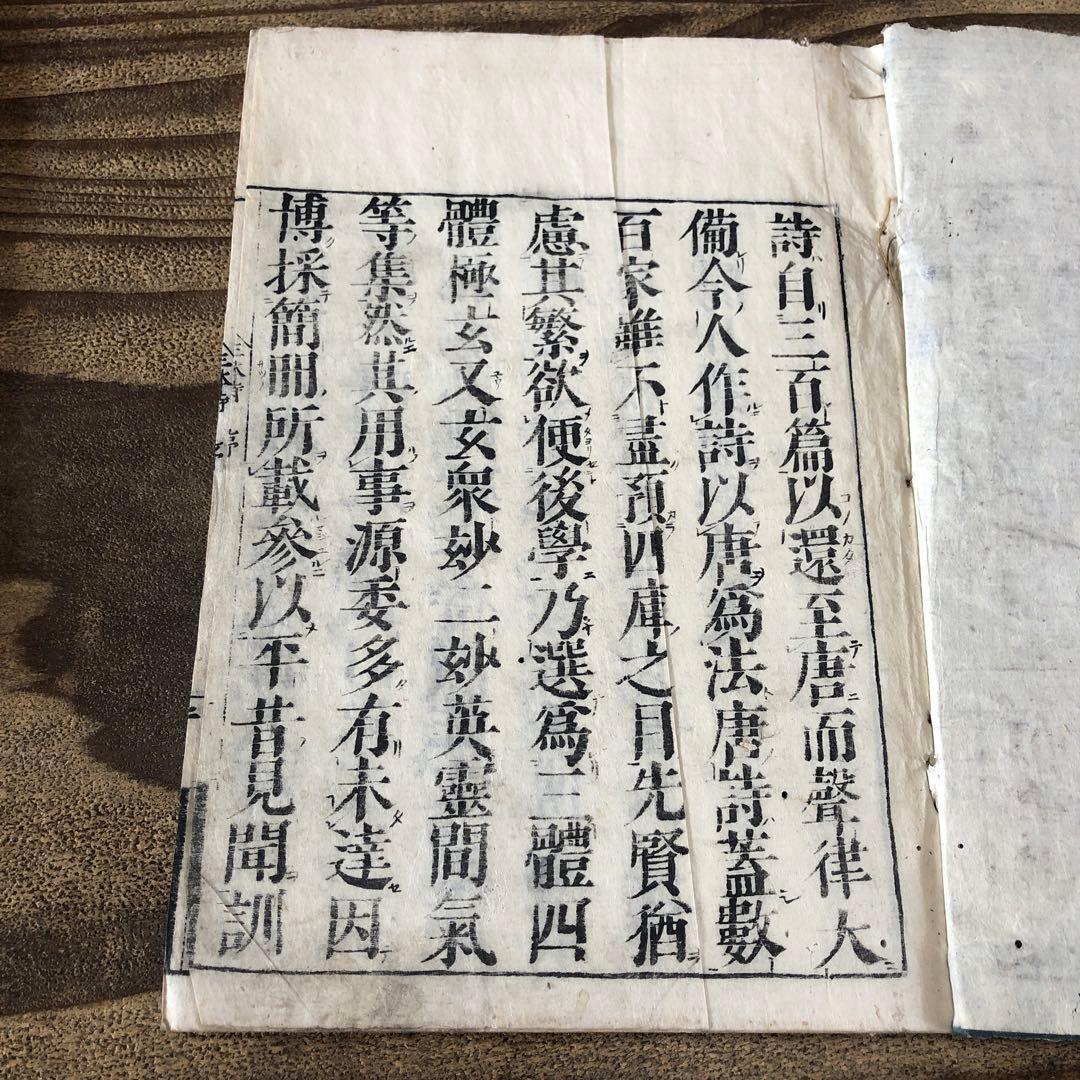 詩自三百篇以還至唐而聲律大
備今人作詩以唐爲法唐詩葢數
百家雖不盡預四庫之目先賢猶
慮其繁欲便後學乃選爲三體四
體極玄又玄衆妙二妙英靈間氣
等集然其用事源委多有未達因
博採簡冊所載參以平昔見聞訓